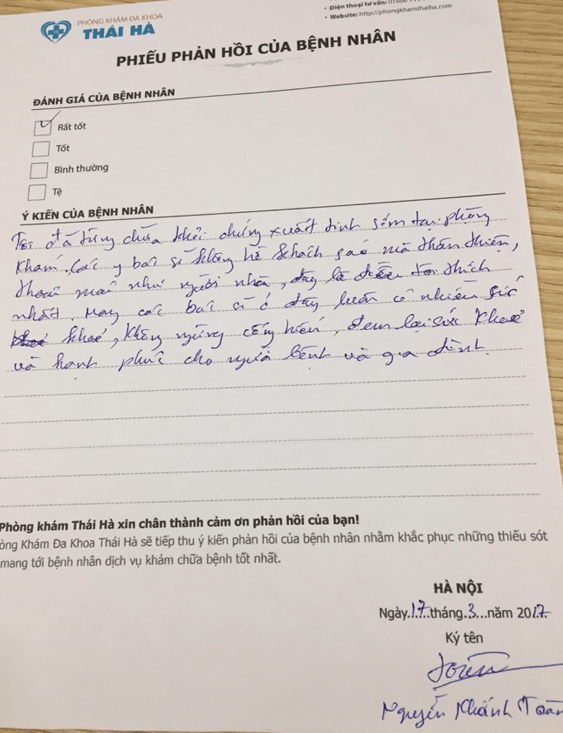 PHÒNG KHÁM ĐA KHOA
THÁI HÀ
• Điện thoại tư vấn:
• Website: http://phongkhamthaiha.com
PHIẾU PHẢN HỒI CỦA BỆNH NHÂN
ĐÁNH GIÁ CỦA BỆNH NHÂN
Rất tốt
Tốt
Bình thường
Tệ
Ý KIẾN CỦA BỆNH NHÂN
Tôi đã từng chữa khỏi chứng xuất tinh sớm tại phòng
khám. Các y bác sĩ không hề khách sáo mà thân thiện,
thoải mái như người nhà, đây là điều tôi thích
nhất. Mong các bác sĩ ở đây luôn có nhiều sức
khoẻ, không ngừng cống hiến, đem lại sức khoẻ
và hạnh phúc cho người bệnh và gia đình.
Phòng khám Thái Hà xin chân thành cảm ơn phản hồi của bạn!
òng Khám Đa Khoa Thái Hà sẽ tiếp thu ý kiến phản hồi của bệnh nhân nhằm khắc phục những thiếu sót
mang tới bệnh nhân dịch vụ khám chữa bệnh tốt nhất.
HÀ NỘI
Ngày.17.tháng.3...năm 2017.
Ký tên
Nguyễn Khánh Toàn